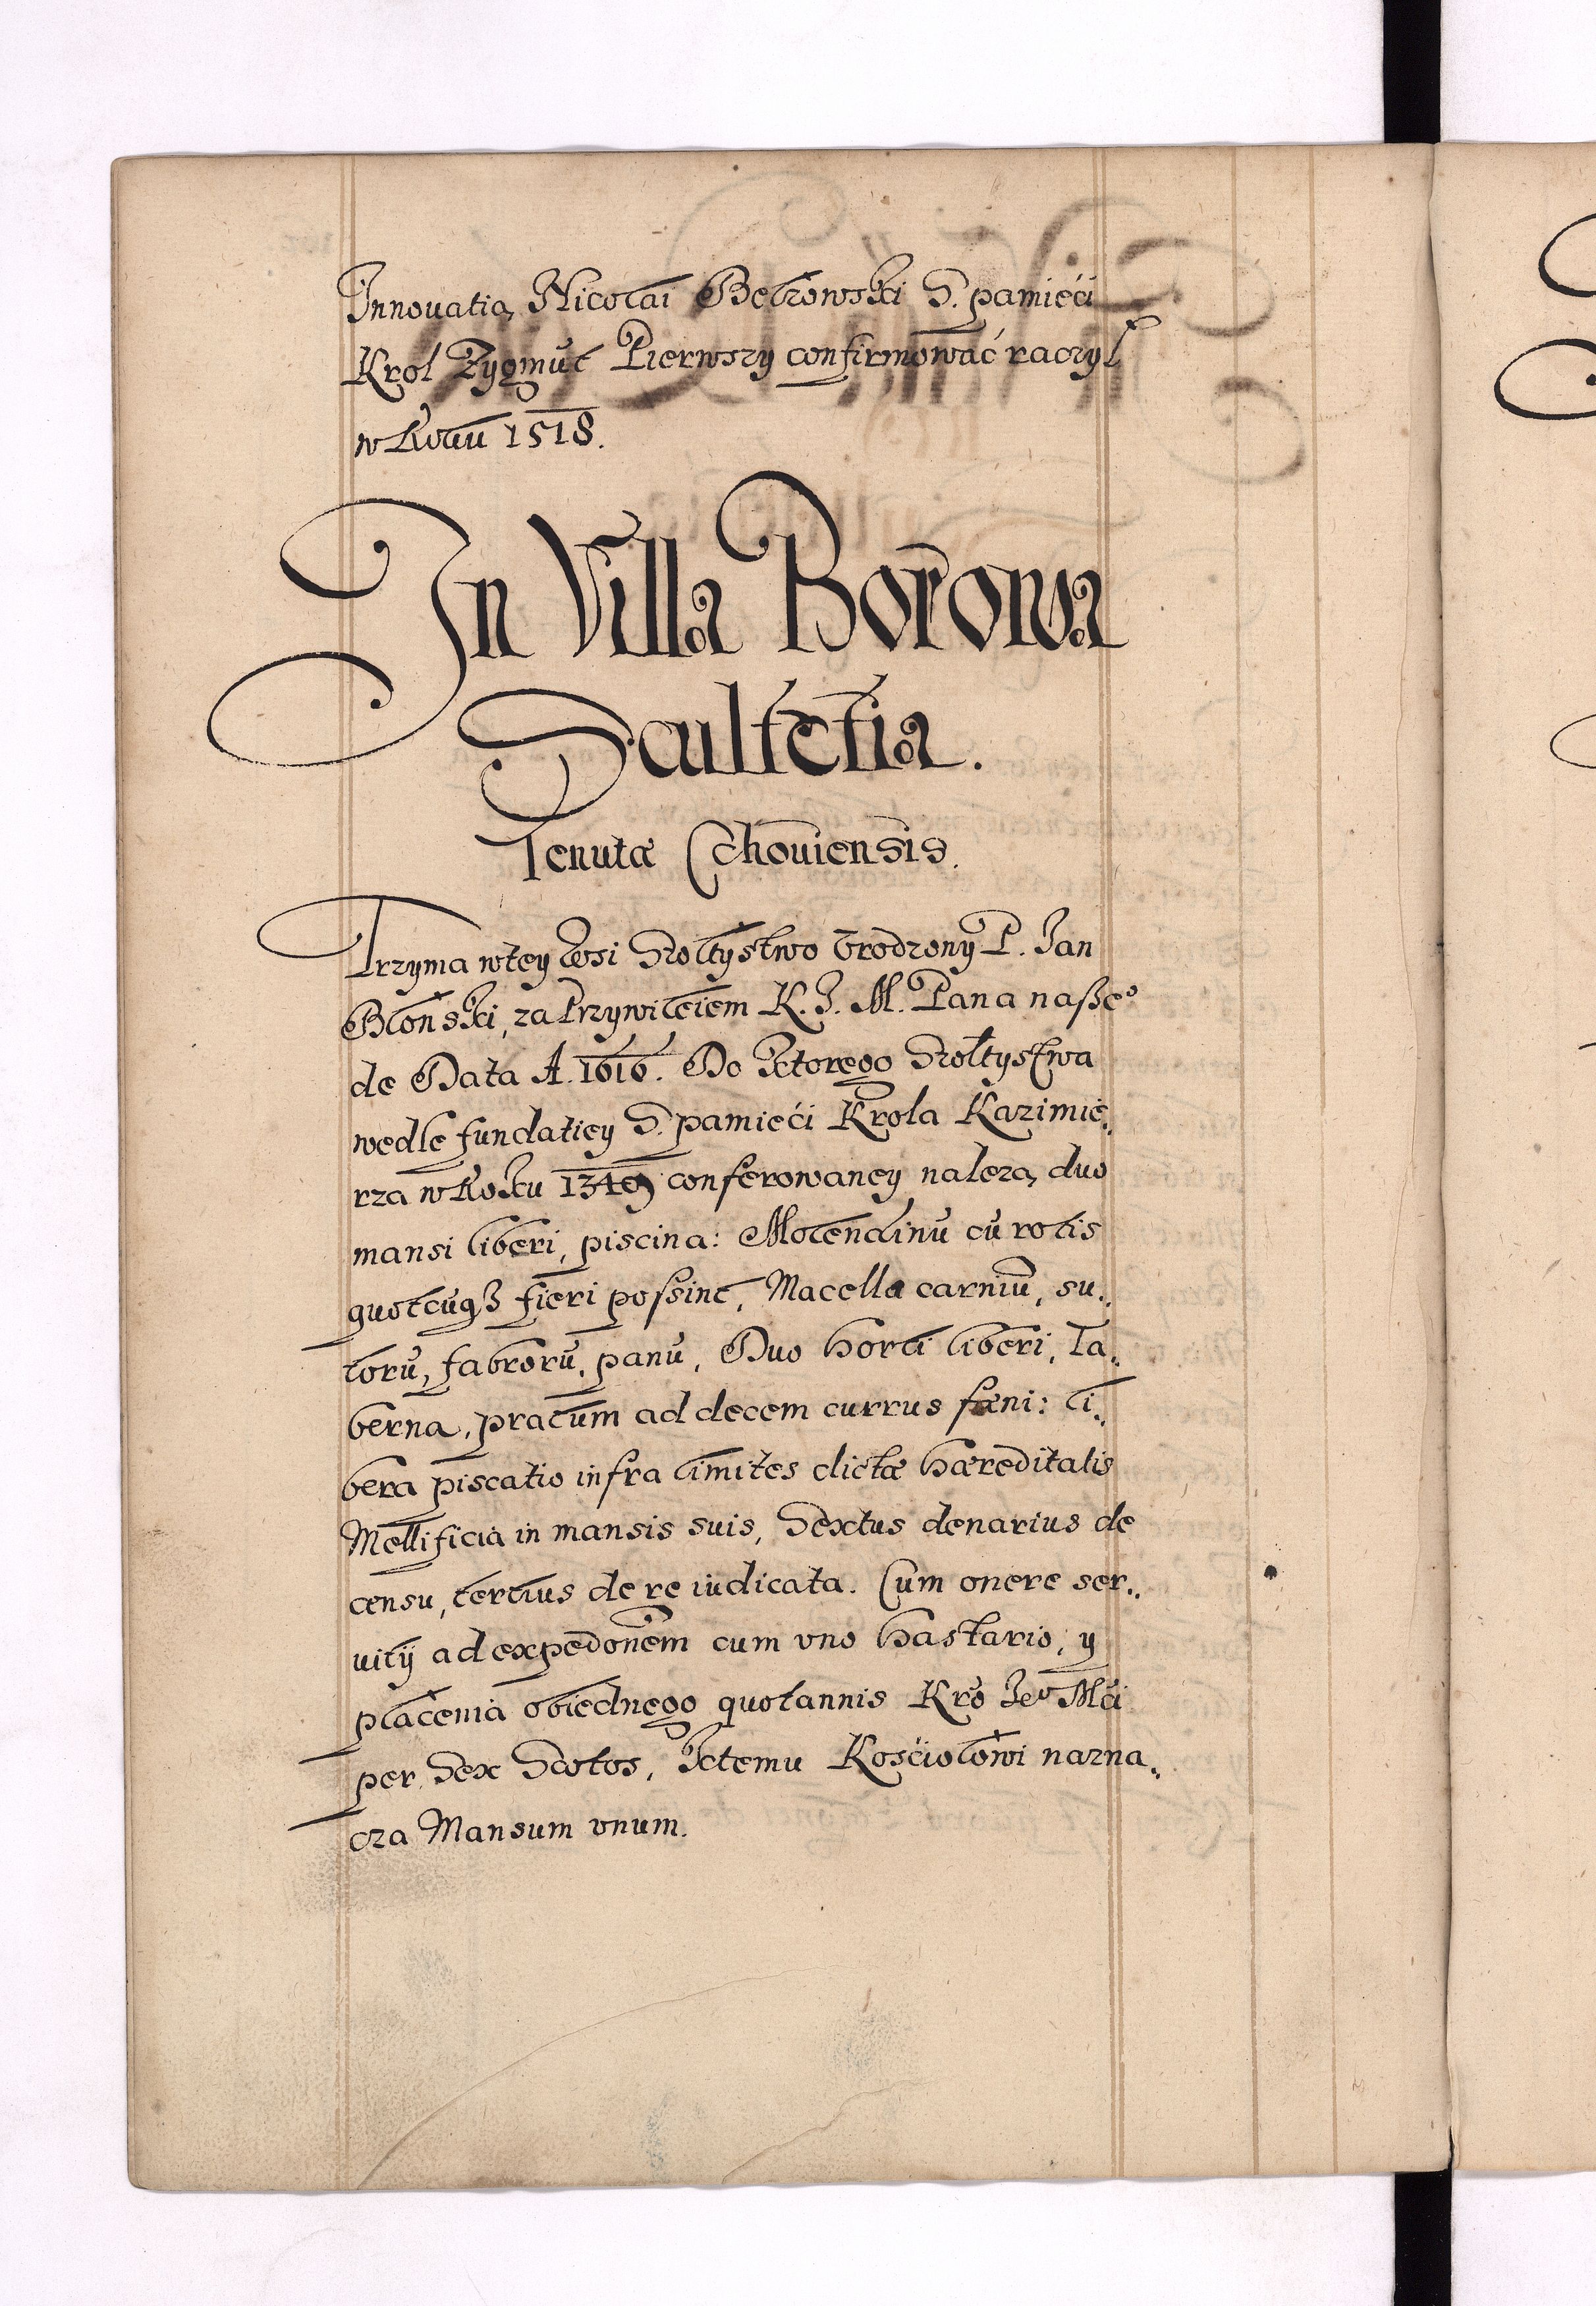 Innovatią Nicolai Bełzowski S. pamięći
Krol Zygmūt Pierwszy confirmować raczył
w Roku 1518.
In Villa Borowa
Scultetia.
Tenutæ Cchouiensis.
Trzyma w tey Wsi Szołtystwo Vrodzony P. Jan
Błonski, za Przywileiem K. J. M. Pana naßeº
de Data A. 1616. Do Ktorego Szołtystwa
wedle fundatiey S. pamięći Krola Kazimie„
rza w Roku 1349 conferowaney należą, duo
mansi liberi, piscina: Molendinū cū rotis
quotcūqȝ fieri poßint, Macella carniū, su„
torū, fabrorū, panū, Duo horti liberi, Ta„
berna, pratum ad decem currus fœni: li„
bera piscatio infra limites dictæ hæreditatis
Mellificia in mansis suis, Sextus denarius de
censu, tertius de re iudicata. Cum onere ser„
uitij ad expedonem cum vno hastario, y
płacenia obiednego quotannis Kro Jeº Mći
per Sex Scotos, Ktemu Kośćiołowi nazna„
cza Mansum vnum.